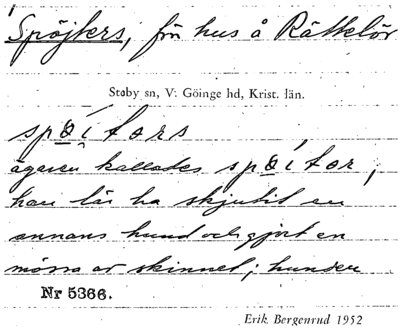 Spöjters, fin hus å Rättelöv
Stoby sn, V: Göinge hd, Krist. län.
spøitors
ägaren kallades spøitor,
han lär ha skjutit en
annans hund och gjort en
mössa av skinnet; hunden
Nr 5366.
Erik Bergenrud 1952